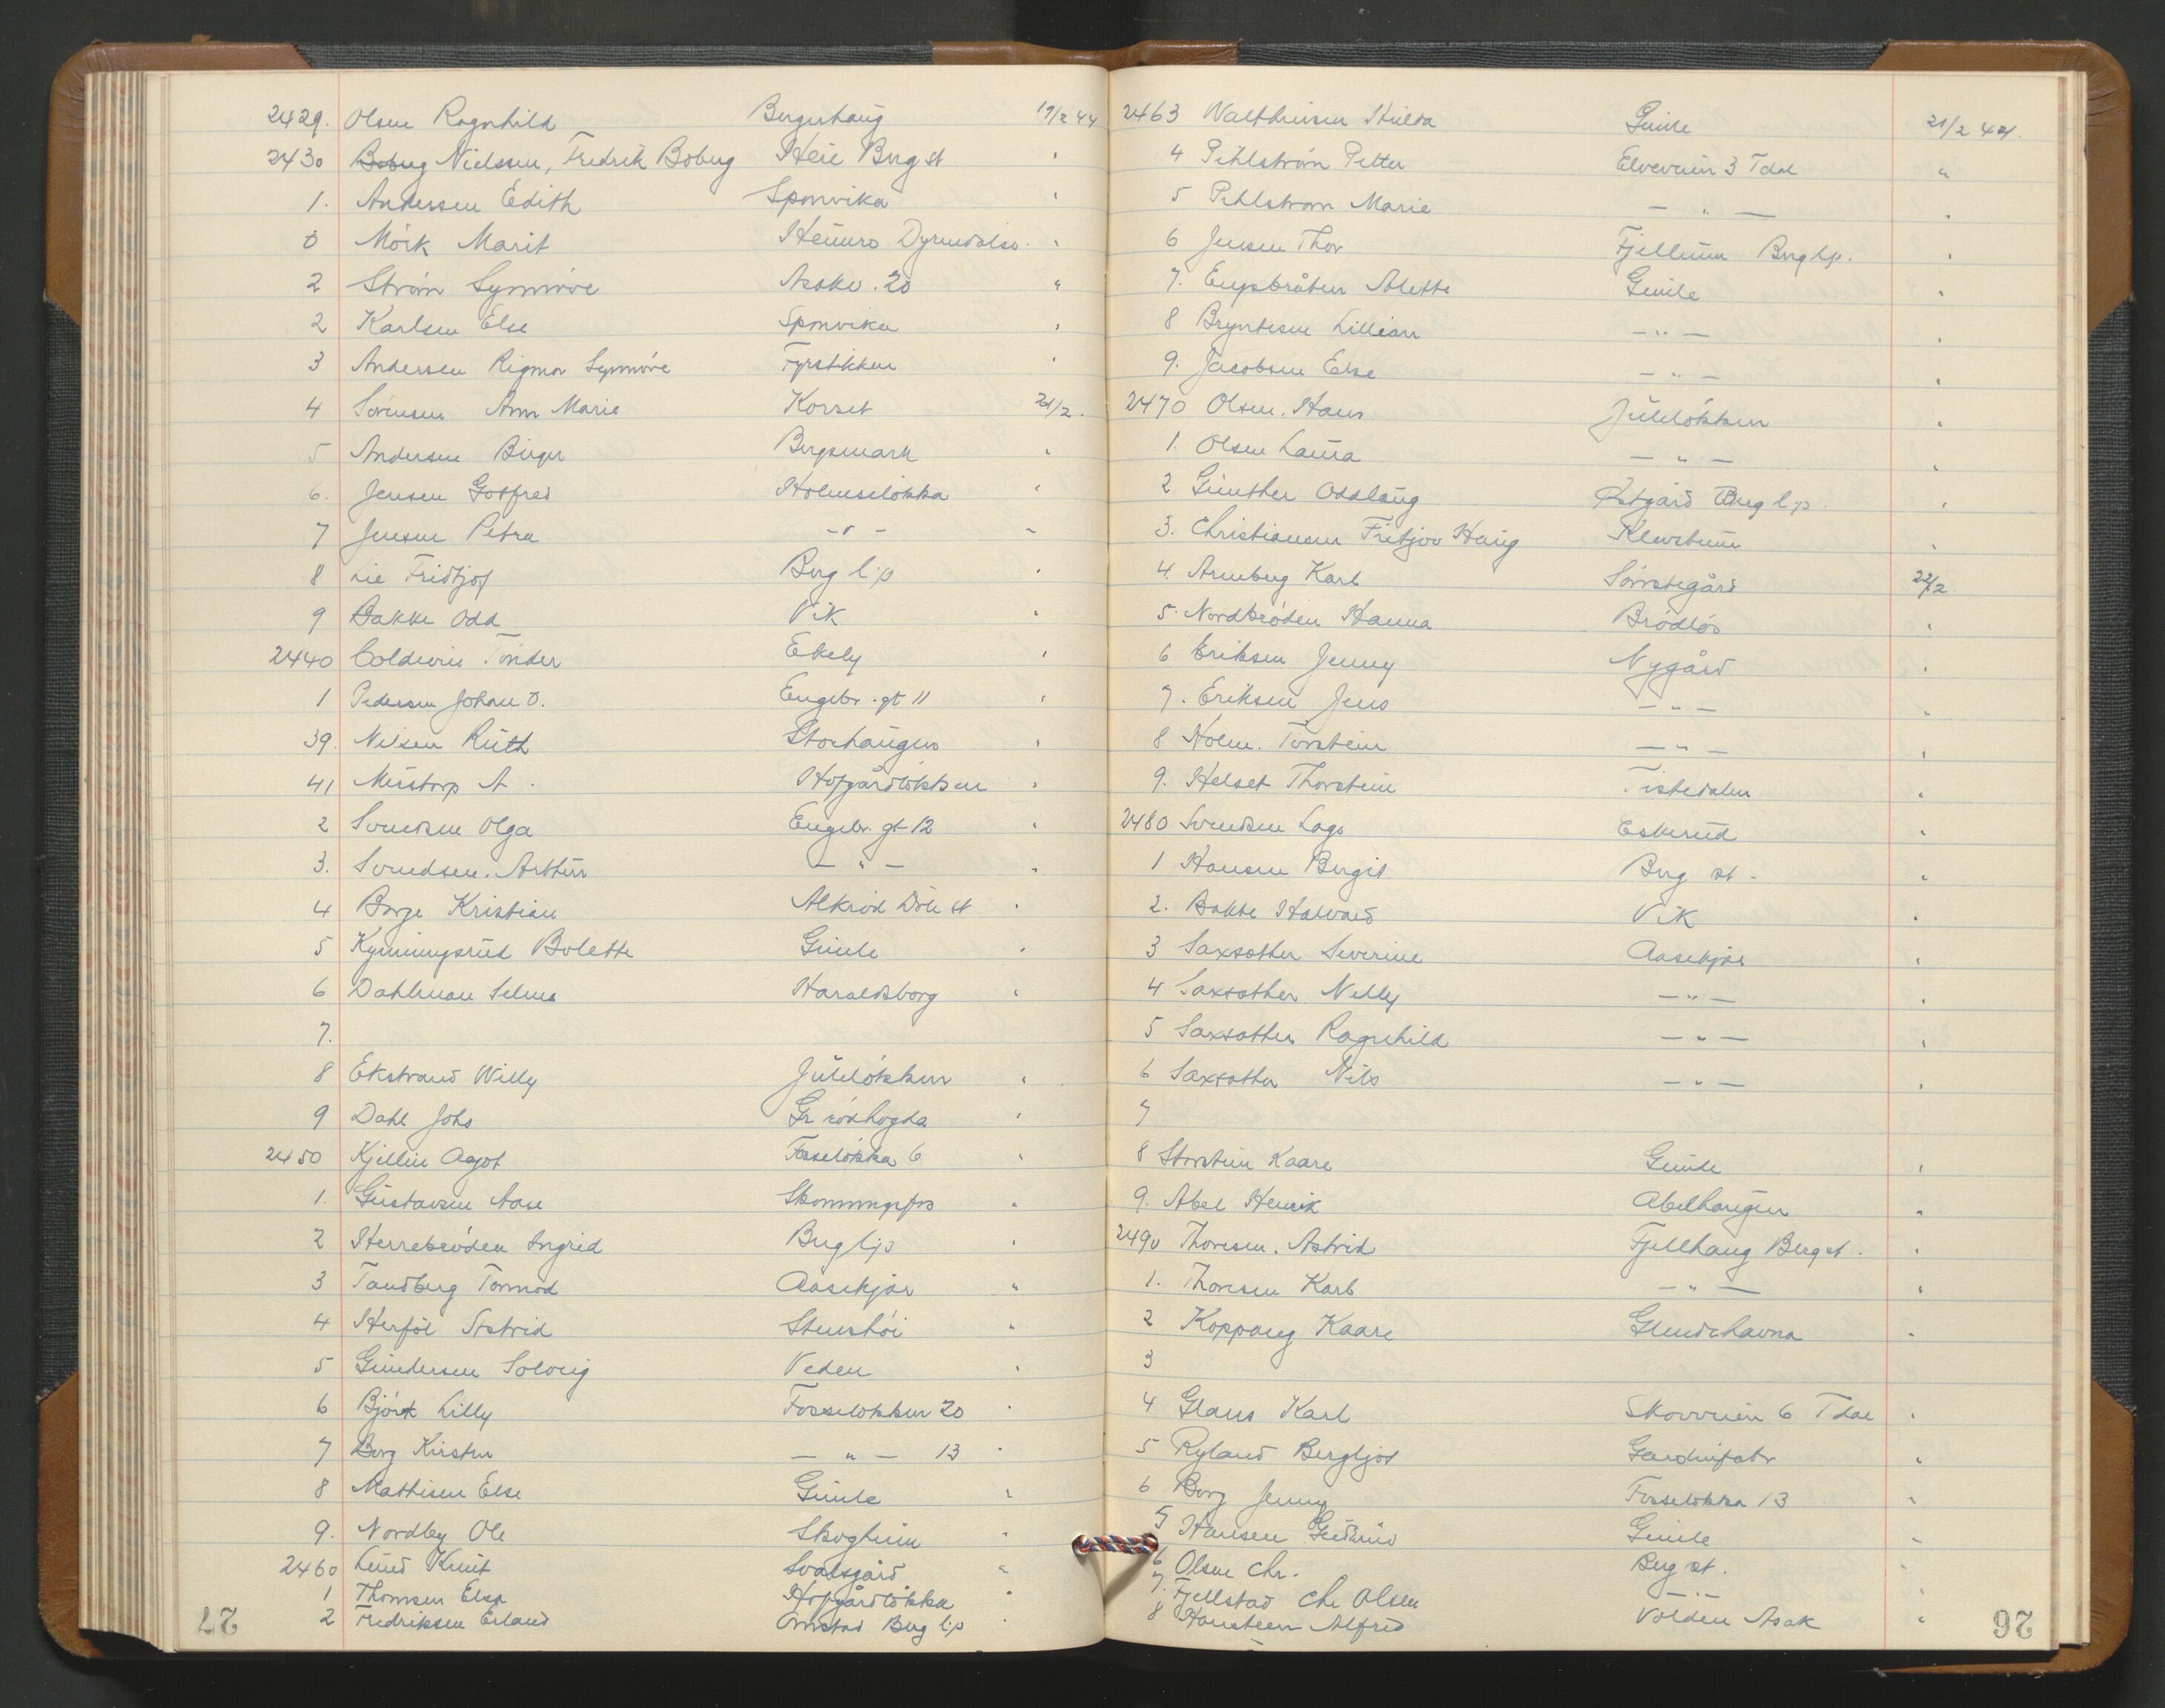 2429. Olsen Ragnhild Berghaug 19/2 44
2430 Boberg Nielssen, Fredrik Boberg Heie Berg st "
1. Andersen Edith Sponvika "
0 Mörk Marit Heimro Dyrendalsv. "
2 Ström Synnöve Asakv. 20 "
2 Karlsen Else Sponvika "
3 Andersen Rigmor Synnöve Fyrstikken "
4 Sörensen Ann Marie Korset 21/2.
5 Andersen Birger Bergsmark "
6. Jensen Gotfred Holmselökka "
7 Jensen Petra - " - "
8 Lie Fridtjof Berg l.p "
9 Bakke Odd Vik "
2440 Coldevin Tönder Ekely "
1 Pedersen Johan O. Engebr. gt 11 "
39. Nilsen Ruth Storhaugen "
41 Mustorp A. Hofgårdlökken "
2 Svendsen Olga Engebr. gt 12 "
3. Svendsen. Arthur — " — "
4 Borge Kristian Alkröd Döle st "
5 Kynningsrud Bolette Gimle "
6 Dahlman Selma Haraldsborg "
7.
8 Ekstrand Willy Julelökken "
9 Dahl Johs Grönhögda "
2450 Kjellin Aagot Fosselökka 6 "
1. Gustavsen Aase Skonningsfos "
2 Herrebröden Ingrid Berg l.p "
3 Tandberg Tormod Aasekjær "
4 Herföl Astrid Stenshöi "
5 Gundersen Solveig Veden "
6 Björk Lilly Fosselökken 20 "
7 Borg Kirsten — " — 13 "
8 Mathisen Else Gimle "
9. Nordby Ole Skogheim "
2460 Lund Knut Svalsgård "
1 Thomsen Elsa Hofgårdlökka "
2 Fredriksen Erland Omstad Berg l.p "
27
2463 Walthinsen Hulda Gimle 21/2 44.
4 Pihlström Petter Elveveien 3 Tdal "
5 Pihlström Marie — " — "
6 Jensen Thor Fjellheim Berg l.p. "
7. Engsbråten Alette Gimle "
8 Bryntesen Lillian — " — "
9. Jacobsen Else — " — "
2470 Olsen. Hans Julelökken "
1. Olsen Laura — " — "
2 Günther Oddlaug Østgård Berg l.p. "
3. Christiansen Fritjov Haug Klevstuen "
4. Arneberg Karl Sörvstegård 22/2
5. Nordbröden Hanna Brödlös "
6 Eriksen Jenny Nygård "
7. Eriksen Jens — " — "
8 Holm. Torstein — " — "
9. Helset Thorstein Tistedalen "
2480 Svendsen Lags Eskerud "
1 Hansen Bergit Berg st. "
2. Bakke Halvard Vik "
3 Saxsæther Severine Aasekjær "
4 Saxsæther Nelly — " — "
5 Saxsæther Ragnhild — " — "
6 Saxsæther Nils — " — "
7
8 Storstein Kaare Gimle "
9. Abel Henrik Abelhaugen "
2490 Thoresen. Astrid Fjellhaug Berg st. "
1. Thoresen Karl — " — "
2 Koppang Kaare Glendehavna "
3
4 Glans Karl Skovveien 6 Tdal "
5 Ryland Bergljot Gardinfabr "
6 Borg Jenny Fosselökka 13 "
5 Hansen Gudrun Gimle "
6 Olsen Chr. Berg st. "
7. Fjellstad Chr Olsen — " — "
8 Hansteen Alfred Volden Asak "
26